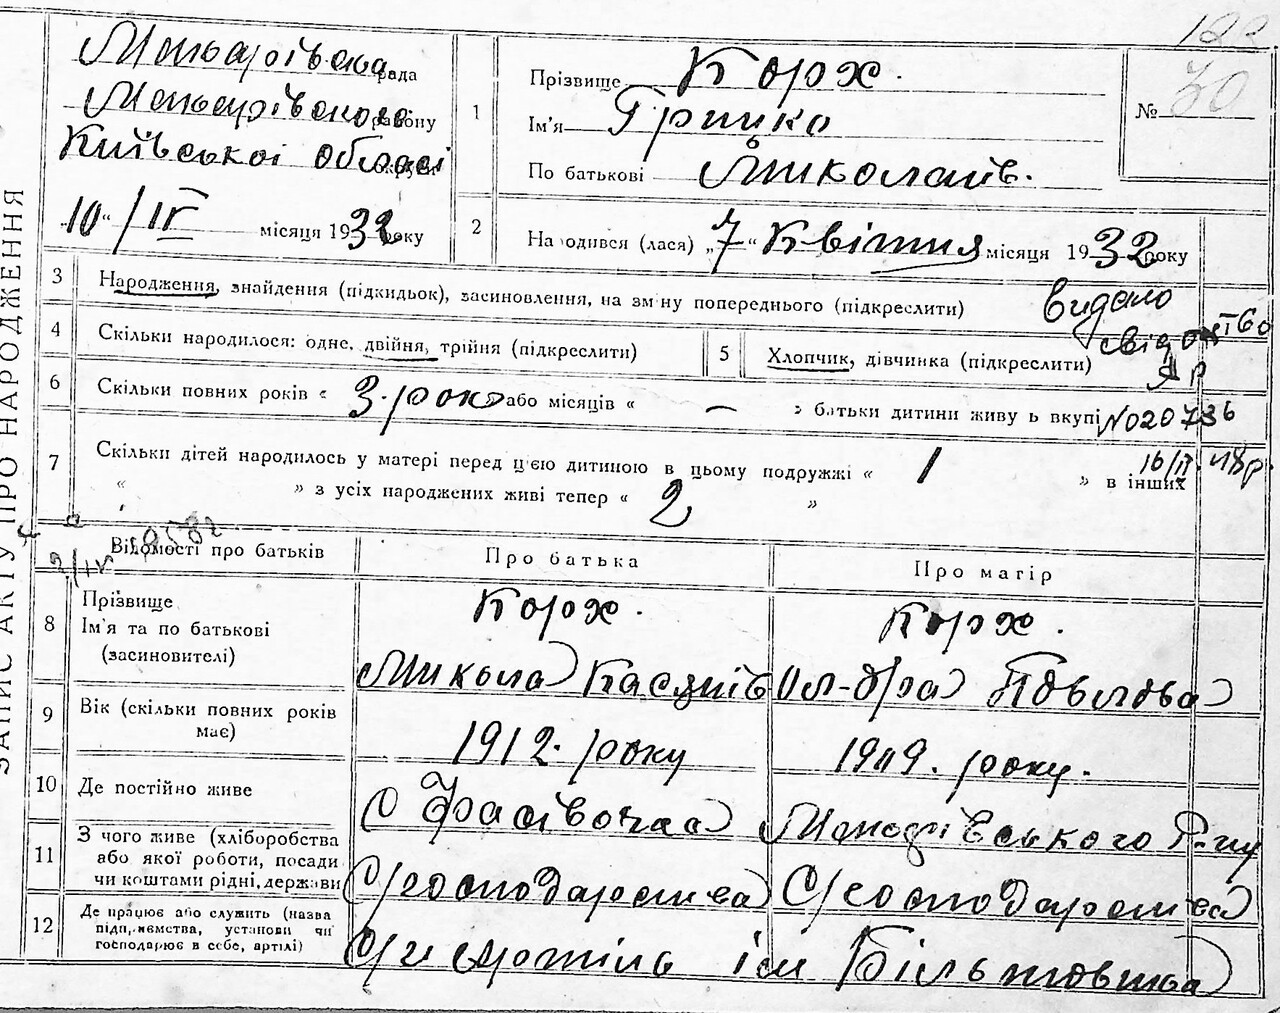 ЗАПИС АКТУ ПРО НАРОДЖЕННЯ
Макарівська рада
Макарівського району
Київської області
„10“ / IV місяця 1932 року
1
Прізвище Корж.
Ім'я Грицко
По батькові Миколаїв.
№ 30
2
На одився (лася) „7“ Квітня місяця 1932 року
3
Народження, знайдення (підкидьок), засиновлення, на зм ну попереднього (підкреслити)
видано
4
Скільки народилося: одне, двійня, трійня (підкреслити)
5
Хлопчик, дівчинка (підкреслити)
6
Скільки повних років « 3. роки або місяців « — » батьки дитини живу ь вкупі
№020736
7
Скільки дітей народилось у матері перед цією дитиною в цьому подружжі « 1 » в інших
16/II
« » з усіх народжених живі тепер « 2 »
Відомості про батьків
Про батька
Про матір
8
Прізвище
Ім'я та по батькові
(засиновителі)
Корж.
Корж.
Микола Касянів
Ол-дра Павлова
9
Вік (скільки повних років
має)
1912. року
1909. року.
10
Де постійно живе
с Фасівочка
Макарівського Р-ну
11
З чого живе (хліборобства
або якої роботи, посади
чи коштами рідні, держави
С/господарства
С/господарства
12
Де працює або служить (назва
підпр.иємства, установи чи
господарює в себе, артілі)
С/г артіль ім